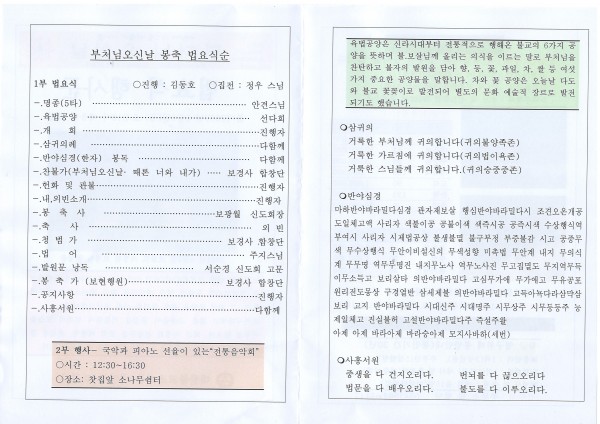 부처님오신날 봉축 법요식순
1부 법요식 ○진행 : 김동호 ○집전 : 정우 스님
-.명종(5타) 안견스님
-.육법공양 선다회
-.개 회 진행자
-.삼귀의례 다함께
-.반야심경(한자) 봉독 다함께
-.찬불가(부처님오신날· 때론 너와 내가) 보경사 합창단
-.헌화 및 관불 진행자
-.내,외빈소개 진행자
-.봉 축 사 보광월 신도회장
-.축 사 외 빈
-.청 법 가 보경사 합창단
-.법 어 주지스님
-.발원문 낭독 서순경 신도회 고문
-.봉 축 가 (보현행원) 보경사 합창단
-.공지사항 진행자
-.사홍서원 다함께
2부 행사- 국악과 피아노 선율이 있는"전통음악회"
○시간 : 12:30~16:30
○장소: 찻집앞 소나무쉼터
육법공양은 신라시대부터 전통적으로 행해온 불교의 6가지 공
양을 뜻하며 불.보살님께 올리는 의식을 이르는 말로 부처님을
찬탄하고 불자의 발원을 담아 향, 등, 꽃, 과일, 차, 쌀 등 여섯
가지 중요한 공양물을 말합니다. 차와 꽃 공양은 오늘날 다도
와 불교 꽃꽂이로 발전되어 별도의 문화 예술적 장르로 발전
되기도 했습니다.
❍삼귀의
거룩한 부처님께 귀의합니다(귀의불양족존)
거룩한 가르침에 귀의합니다(귀의법이욕존)
거룩한 스님들께 귀의합니다.(귀의승중중존)
❍반야심경
마하반야바라밀다심경 관자재보살 행심반야바라밀다시 조견오온개공
도일체고액 사리자 색불이공 공불이색 색즉시공 공즉시색 수상행식역
부여시 사리자 시제법공상 불생불멸 불구부정 부증불감 시고 공중무
색 무수상행식 무안이비설신의 무색성향 미촉법 무안계 내지 무의식
계 무무명 역무무명진 내지무노사 역무노사진 무고집멸도 무지역무득
이무소득고 보리살타 의반야바라밀다 고심무가애 무가애고 무유공포
원리전도몽상 구경열반 삼세제불 의반야바라밀다 고득아뇩다라삼먁삼
보리 고지 반야바라밀다 시대신주 시대명주 시무상주 시무등등주 능
제일체고 진실불허 고설반야바라밀다주 즉설주왈
아제 아제 바라아제 바라승아제 모지사바하(세번)
❍사홍서원
중생을 다 건지오리다. 번뇌를 다 끊으오리다
법문을 다 배우오리다. 불도를 다 이루오리다.